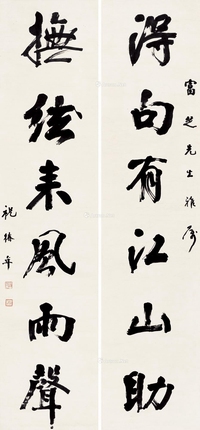 富芝先生雅属
得句有江山助
撫絃来風雨聲
祝椿年